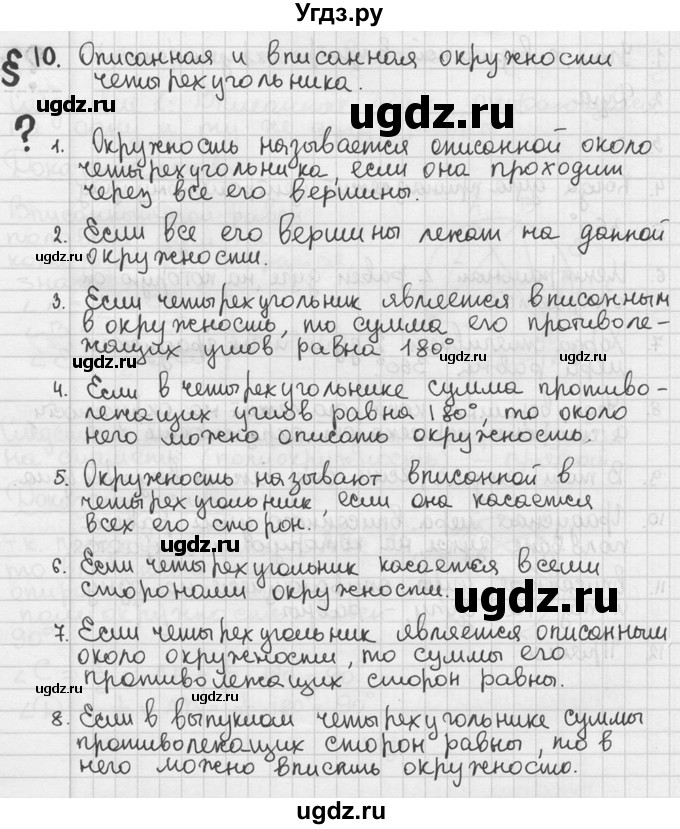 Угдз.ру
§ 10. Описанная и вписанная окружности
четырехугольника.
ugdz.ru
ugdz.ru
? 1. Окружность называется описанной около
четырехугольника, если она проходит
через все его вершины.
ugdz.ru
2. Если все его вершины лежат на данной
окружности.
ugdz.ru
3. Если четырехугольник является вписанным
в окружность, то сумма его противоле-
жащих углов равна 180°.
ugdz.ru
ugdz.ru
4. Если в четырехугольнике сумма противо-
лежащих углов равна 180°, то около
него можно описать окружность.
ugdz.ru
5. Окружность называют вписанной в
четырехугольник, если она касается
всех его сторон.
ugdz.ru
6. Если четырехугольник касается всеми
сторонами окружности.
ugdz.ru
7. Если четырехугольник является описанным
около окружности, то суммы его
противолежащих сторон равны.
ugdz.ru
ugdz.ru
8. Если в выпуклом четырехугольнике суммы
противолежащих сторон равны, то в
него можно вписать окружность.
ugdz.ru
ugdz.ru